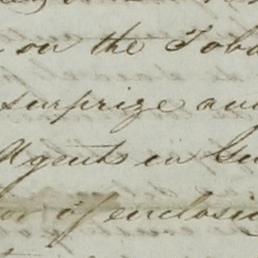 on the Toba
surprize and
Agents in Gu
or of enclosi